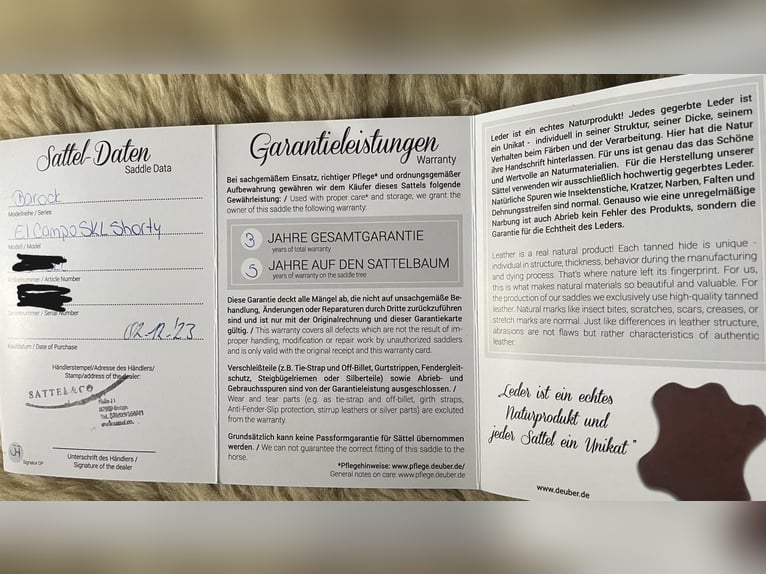 Sattel-Daten
Saddle Data
Barock
Modellreihe / Series
El Campo SKL Shorty
Modell / Model
/ Article Number
/ Serial Number
02.12.'23
Kaufdatum / Date of Purchase
Händlerstempel/Adresse des Händlers/
Stamp/address of the dealer:
SATTEL & CO
Signatur DP
Unterschrift des Händlers /
Signature of the dealer
Garantieleistungen
Warranty
Bei sachgemäßem Einsatz, richtiger Pflege* und ordnungsgemäßer
Aufbewahrung gewähren wir dem Käufer dieses Sattels folgende
Gewährleistung: / Used with proper care* and storage, we grant the
owner of this saddle the following warranty.
3 JAHRE GESAMTGARANTIE
years of total warranty
5 JAHRE AUF DEN SATTELBAUM
years of warranty on the saddle tree
Diese Garantie deckt alle Mängel ab, die nicht auf unsachgemäße Be-
handlung, Änderungen oder Reparaturen durch Dritte zurückzuführen
sind und ist nur mit der Originalrechnung und dieser Garantiekarte
gültig. / This warranty covers all defects which are not the result of im-
proper handling, modification or repair work by unauthorized saddlers
and is only valid with the original receipt and this warranty card.
Verschleißteile (z.B. Tie-Strap und Off-Billet, Gurtstrippen, Fendergleit-
schutz, Steigbügelriemen oder Silberteile) sowie Abrieb- und
Gebrauchsspuren sind von der Garantieleistung ausgeschlossen. /
Wear and tear parts (e.g. as tie-strap and off-billet, girth straps,
Anti-Fender-Slip protection, stirrup leathers or silver parts) are excluded
from the warranty.
Grundsätzlich kann keine Passformgarantie für Sättel übernommen
werden. / We can not guarantee the correct fitting of this saddle to the
horse.
*Pflegehinweise: www.pflege.deuber.de/
General notes on care: www.pflege.deuber.de
Leder ist ein echtes Naturprodukt! Jedes gegerbte Leder ist
ein Unikat - individuell in seiner Struktur, seiner Dicke, seinem
Verhalten beim Färben und der Verarbeitung. Hier hat die Natur
ihre Handschrift hinterlassen. Für uns ist genau das das Schöne
und Wertvolle an Naturmaterialien. Für die Herstellung unserer
Sättel verwenden wir ausschließlich hochwertig gegerbtes Leder.
Natürliche Spuren wie Insektenstiche, Kratzer, Narben, Falten und
Dehnungsstreifen sind normal. Genauso wie eine unregelmäßige
Narbung ist auch Abrieb kein Fehler des Produkts, sondern die
Garantie für die Echtheit des Leders.
Leather is a real natural product! Each tanned hide is unique -
individual in structure, thickness, behavior during the manufacturing
and dying process. That's where nature left its fingerprint. For us,
this is what makes natural materials so beautiful and valuable. For
the production of our saddles we exclusively use high-quality tanned
leather. Natural marks like insect bites, scratches, scars, creases, or
stretch marks are normal. Just like differences in leather structure,
abrasions are not flaws but rather characteristics of authentic
leather.
„Leder ist ein echtes
Naturprodukt und
jeder Sattel ein Unikat"
www.deuber.de